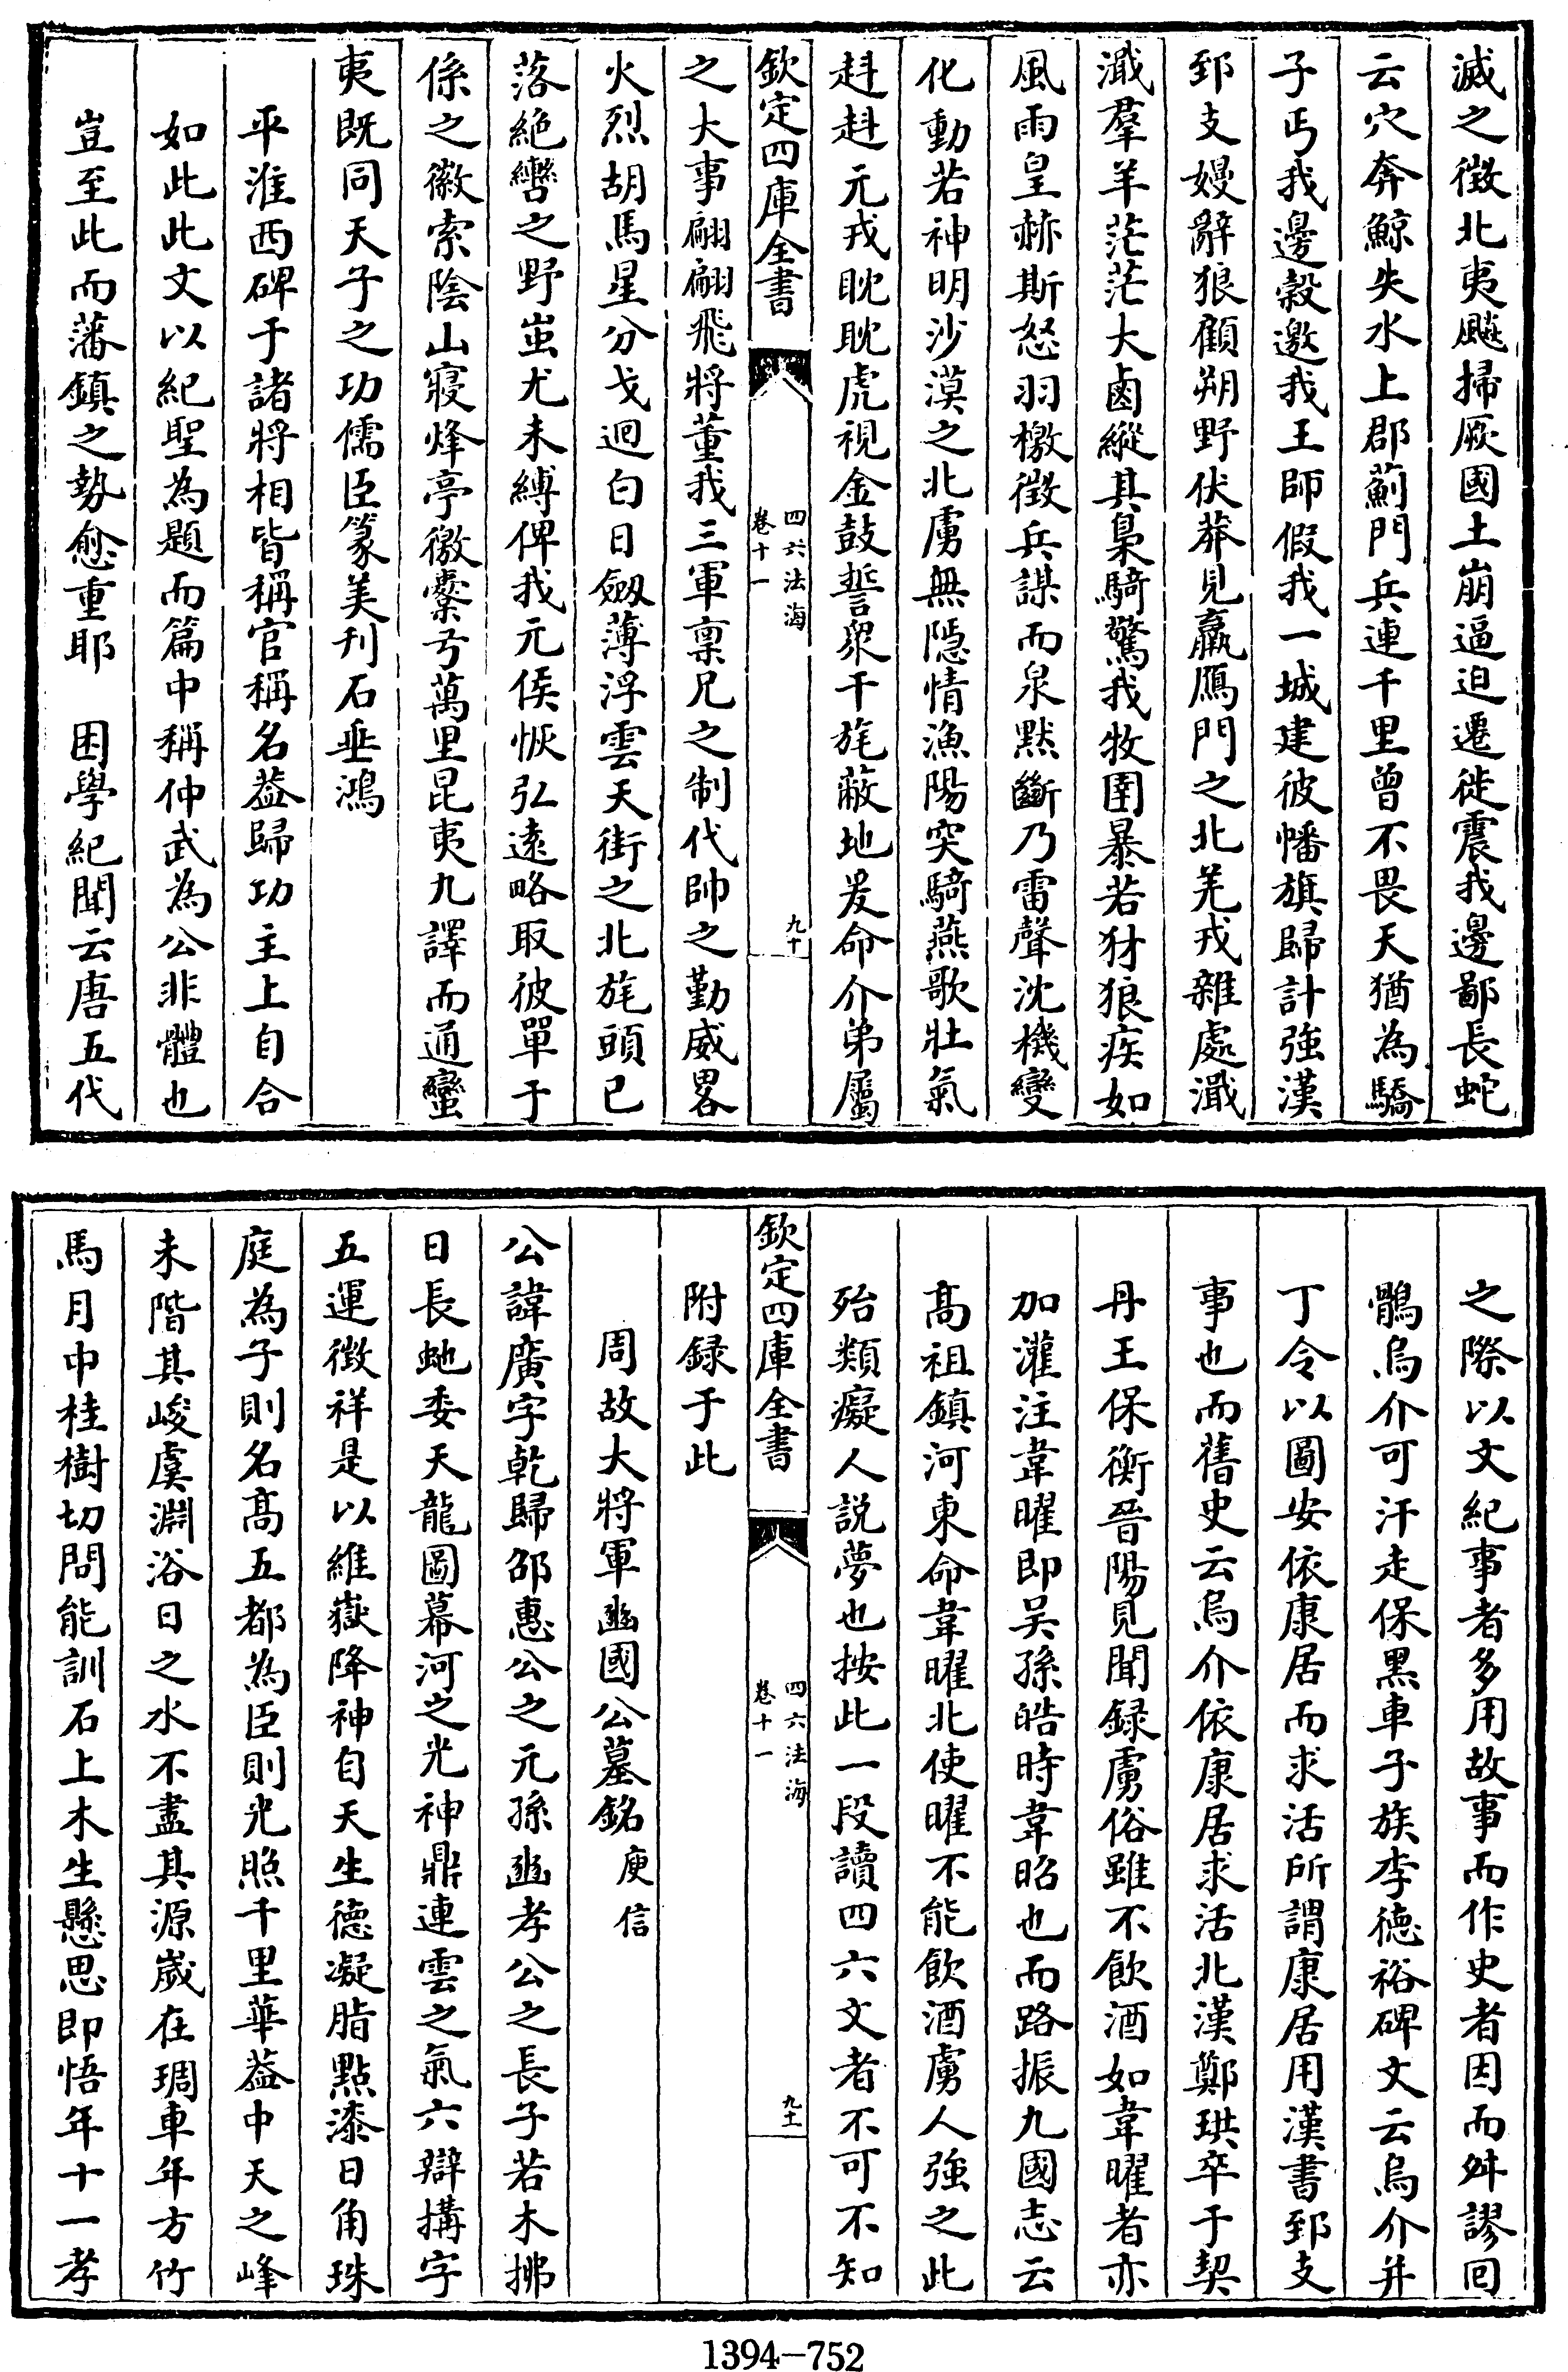 滅之徴北夷飈掃厥國土崩逼迫遷徙震我邊鄙長蛇
云穴奔鯨失水上郡薊門兵連千里曾不畏天猶為驕
子丐我邊穀邀我王師假我一城建彼幡旗歸計強漢
郅支嫚辭狼顧朔野伏莽見羸鴈門之北羌戎雜處濈
濈羣羊茫茫大鹵縱其梟騎驚我牧圉暴若豺狼疾如
風雨皇赫斯怒羽檄徴兵謀而泉黙斷乃雷聲沈機變
化動若神明沙漠之北虜無隠情漁陽突騎燕歌壯氣
赳赳元戎眈眈虎視金鼓誓衆干旄蔽地爰命介弟屬
欽定四庫全書
四六法海
卷十一
九十
之大事翩翩飛將董我三軍稟兄之制代帥之勤威畧
火烈胡馬星分戈迴白日劔薄浮雲天街之北旄頭已
落絶轡之野蚩尤未縛俾我元侯恢弘逺略取彼單于
係之徽索隂山寢烽亭徼櫜弓萬里昆夷九譯而通蠻
夷既同天子之功儒臣篆美刋石垂鴻
平淮西碑于諸將相皆稱官稱名葢歸功主上自合
如此此文以紀聖為題而篇中稱仲武為公非體也
豈至此而藩鎮之勢愈重耶　困學紀聞云唐五代
之際以文紀事者多用故事而作史者因而舛謬回
鶻烏介可汗走保黒車子族李徳裕碑文云烏介并
丁令以圖安依康居而求活所謂康居用漢書郅支
事也而舊史云烏介依康居求活北漢鄭珙卒于契
丹王保衡晉陽見聞録虜俗雖不飲酒如韋曜者亦
加灌注韋曜即吴孫皓時韋昭也而路振九國志云
髙祖鎮河東命韋曜北使曜不能飲酒虜人強之此
殆類癡人説夢也按此一段讀四六文者不可不知
欽定四庫全書
四六法海
卷十一
九十一
附録于此
周故大將軍豳國公墓銘　庾信
公諱廣字乾歸邵惠公之元孫豳孝公之長子若木拂
日長虵委天龍圖幕河之光神鼎連雲之氣六辯搆字
五運徴祥是以維嶽降神自天生德凝脂點漆日角珠
庭為子則名髙五都為臣則光照千里華葢中天之峰
未階其峻虞淵浴日之水不盡其源嵗在琱車年方竹
馬月中桂樹切問能訓石上木生懸思即悟年十一孝
1394-752